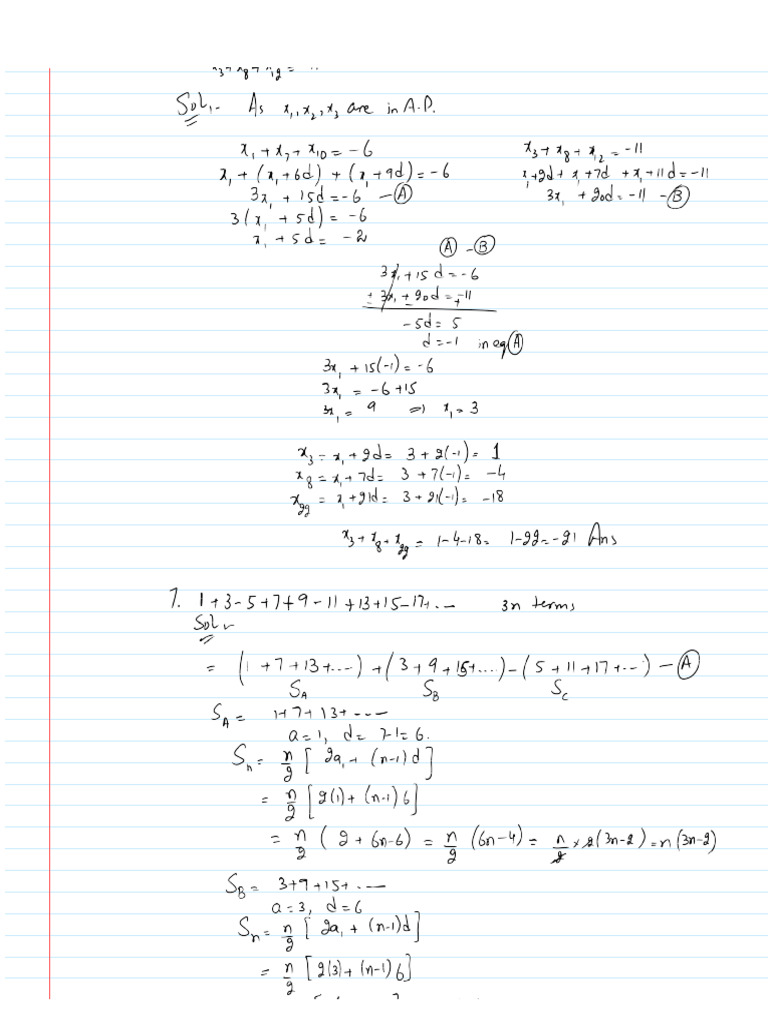 x₃ + x₈ + x₁₂ = -11
Sol:- As x₁, x₂, x₃ are in A.P.
x₁ + x₇ + x₁₀ = -6
x₁ + (x₁ + 6d) + (x₁ + 9d) = -6
3x₁ + 15d = -6 - Ⓐ
3(x₁ + 5d) = -6
x₁ + 5d = -2
x₃ + x₈ + x₁₂ = -11
x₁ + 2d + x₁ + 7d + x₁ + 11d = -11
3x₁ + 20d = -11 - Ⓑ
Ⓐ - Ⓑ
3x₁ + 15d = -6
± 3x₁ ± 20d = -11
+
-5d = 5
d = -1 in eq Ⓐ
3x₁ + 15(-1) = -6
3x₁ = -6 + 15
3x₁ = 9 ⇒ x₁ = 3
x₃ = x₁ + 2d = 3 + 2(-1) = 1
x₈ = x₁ + 7d = 3 + 7(-1) = -4
x₂₂ = x₁ + 21d = 3 + 21(-1) = -18
x₃ + x₈ + x₂₂ = 1 - 4 - 18 = 1 - 22 = -21 Ans
7. 1 + 3 - 5 + 7 + 9 - 11 + 13 + 15 - 17 + ... 3n terms
Sol:-
= (1 + 7 + 13 + ...) + (3 + 9 + 15 + ....) - (5 + 11 + 17 + ...) - Ⓐ
S_A S_B S_C
S_A = 1 + 7 + 13 + ...
a = 1, d = 7 - 1 = 6.
Sₙ = n/2 [2a₁ + (n-1)d]
= n/2 [2(1) + (n-1)6]
= n/2 (2 + 6n - 6) = n/2 (6n - 4) = n/2 × 2(3n - 2) = n(3n - 2)
S_B = 3 + 9 + 15 + ...
a = 3, d = 6
Sₙ = n/2 [2a₁ + (n-1)d]
= n/2 [2(3) + (n-1)6]